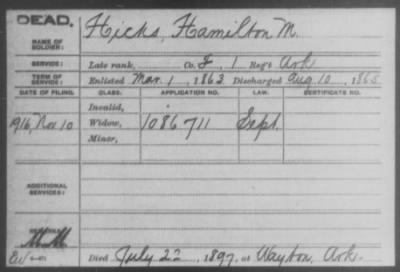 DEAD.
NAME OF SOLDIER: Hicks, Hamilton M.
SERVICE: Late rank, Co. F, 1 Reg't Ark
TERM OF SERVICE: Enlisted Mar. 1, 1863 Discharged Aug. 10, 1865
DATE OF FILING. CLASS. APPLICATION NO. LAW. CERTIFICATE NO.
Invalid,
1916, Nov 10 Widow, 1086711 Sept.
Minor,
ADDITIONAL SERVICES:
MM
Died July 22, 1897, at Wayton, Ark.